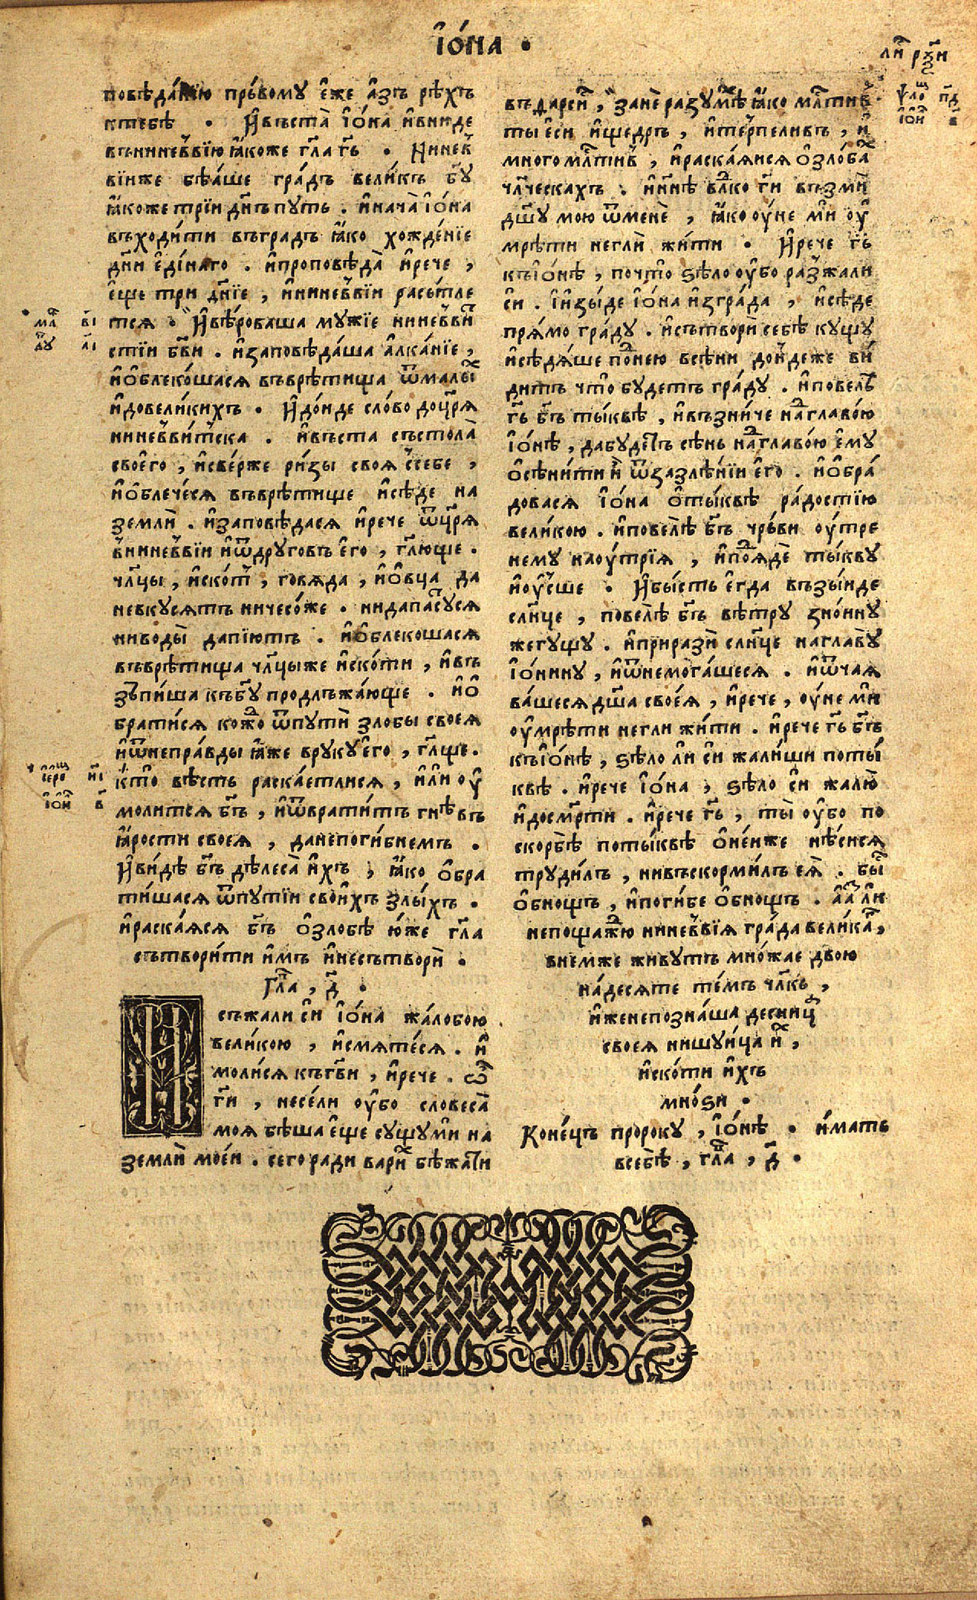 І҆О́НА •
ли҃ рч҃и
повѣда́нїю прь́вому є҆́же а҆́зъ рѣ́хъ
ктебѣ̀ • И҆въста̀ і҆о́на и҆вни́де
вънинев҃ві́ю ꙗ҆́коже гл҃а гь҃ • Нинев҃
ві́иже бѣа́ше гра́дъ вели́къ бг҃у
ꙗ҆́коже трїи дн҃ѣ пу́ть . и҆нача̀ і҆о́на
въходи́ти въгра́дъ ꙗ҆́ко хожде́нїе
дн҃и є҆ди́наго . и҆проповѣ́да и҆речѐ ,
є҆щѐ три дн҃їе , и҆нинев҃ві́и расы́пле
тся • И҆вѣ́роваша му́жїе нинев҃ви҃
стїи бг҃ви . и҆заповѣ́даша а҆лка́нїе ,
и҆ѡ҆блеко́шася въврѣ́тища ѿма́лы҃
и҆довели́кихъ • И҆до́иде сло́во доцр҃я
нинев҃ви́тска . и҆въста̀ състола̀
своего̀ , и҆све́рже ри́зы своя̀ ѿсебѐ ,
и҆ѡ҆блече́ся въврѣ́тище и҆сѣ́де на
землѝ . и҆заповѣ́дася и҆речѐ ѿцр҃я
в҃нинев҃ві́и и҆ѿдру́говъ є҆го̀ , гл҃юще .
чл҃цы , и҆ско́т҃ , говя́да , и҆ѻ҆́вца , да
невкуся́тъ ничесо́же . нидапасу́ся
ниводы̀ дапїю́тъ . и҆ѡ҆блеко́шася
въврѣ́тища чл҃цыже и҆ско́ти , и҆въ
зъпи́ша къбг҃у продлъжа́юще . и҆ѡ҆
брати́ся ко́ж҃о ѿпутѝ зло́бы своея̀
и҆ѿнепра́вды ꙗ҆́же вруку̀є҆го̀ , гл҃ще .
кто̀ вѣ́сть раска́етлися , и҆́ли оу҆
мо́лится бг҃ъ , и҆ѿврати́тъ гнѣ́въ
ꙗ҆́рости своея̀ , данепоги́бнемъ .
И҆ви́дѣ бг҃ъ дѣлеса̀ и҆́хъ , ꙗ҆́ко ѡ҆бра
ти́шася ѿпутїи свои́хъ злы́хъ .
и҆раска́яся бг҃ъ ѡ҆зло́бѣ ю҆́же гл҃а
сътвори́ти и҆́мъ и҆несътворѝ •
Гла҃ , д҃ •
И҆съжали́ си і҆о́на жа́лобою
вели́кою , и҆смяте́ся . и҆
моли́ся къгв҃и , и҆речѐ . ѽ
гі҃ , несе́ли оу҆́бо словеса̀
моя̀ бѣ́ша є҆щѐ су́щуми на
землѝ мое́и . сего́ ради вари́х҃ бѣжа́ти
мл҃ ві
л҃у аі
іер҃о иі
іо҃и в҃
въдарси҃ , занѐ разумѣ́ ꙗ҆́ко мл҃тив҃
ты̀ єсѝ и҆ще́дръ , и҆терпели́въ , и҆
многомл҃тив҃ , и҆раска́яися ѡ҆зло́ба҃
чл҃ческахъ . и҆нн҃ѣ вл҃ко гі҃ възмѝ
дш҃у мою̀ ѿменѐ , ꙗ҆́ко оу҆́не мѝ оу҆
мрѣ́ти негли̏ жи́ти • И҆речѐ гь҃
къіѡ҆́нѣ , почто̀ ѕѣло̀ оу҆́бо разжали́
си . і҆и҆зы́де і҆о́на и҆згра́да , и҆сѣ́де
пря́мо гра́ду . и҆сътворѝ себѣ̀ ку́щу
и҆сѣдя́ше по҃нею всѣ́ни до́ндеже ви́
дитъ что̀ бу́детъ гра́ду . и҆повелѣ̀
гь҃ бг҃ъ ты́квѣ , и҆възни́че на҃главо́ю
і҆ѡ́нѣ , дабу́детъ сѣ́нь на҃главо́ю є҆му̀
ѡ҆сѣни́ти и҆̀ ѿзазлѣ́нїи є҆го̀ . и҆ѡ҆бра́
довася і҆о́на ѡ҆ты́квѣ ра́достїю
вели́кою . и҆повелѣ̀ бг҃ъ чрь́ви оу҆́тре
нему наоу҆́трїя , и҆под҃яде ты́кву
и҆оу҆́сше • И҆бы́сть є҆гда̀ възы́иде
сл҃нце , повелѣ̀ бг҃ъ вѣ́тру зно́ину
жегу́щу . и҆приразѝ сл҃нце наглаву̀
і҆ѡ́нину , и҆ѿнемога́шеся . и҆ѿчая
ва́шеся дш҃а своея̀ , и҆речѐ , оу҆́не мѝ
оу҆мрѣ́ти негли жи́ти . и҆речѐ гь҃ бг҃ъ
къіѡ҆́нѣ , ѕѣло̀ ли си жали́ши поты́
квѣ . и҆речѐ і҆о́на , ѕѣло̀ си жалю̀
и҆досм҃рти . и҆речѐ гь҃ , ты̀ оу҆́бо по
ско́рбѣ поты́квѣ ѡ҆не́иже нѣ́сися
труди́лъ , нивъскорми́лъ єя̀ . бы҃
ѡ҆бно́щь , и҆поги́бе ѡ҆бно́щь . а҆́а҃ ли
непоща́жю нинев҃ві́я гра́да вели́ка҃ ,
вне́мже живу́тъ мно́жае двою̀
на́десяте те́мъ чл҃къ ,
и҆́женепозна́ша десни́ц҃
своея̀ нишуи́ца и҃ ,
и҆ско́ти и҆́хъ
мно́ѕи •
Коне́цъ проро́ку , і҆ѡ́нѣ • и҆́мать
всебѣ̀ , гла҃ , д҃ •